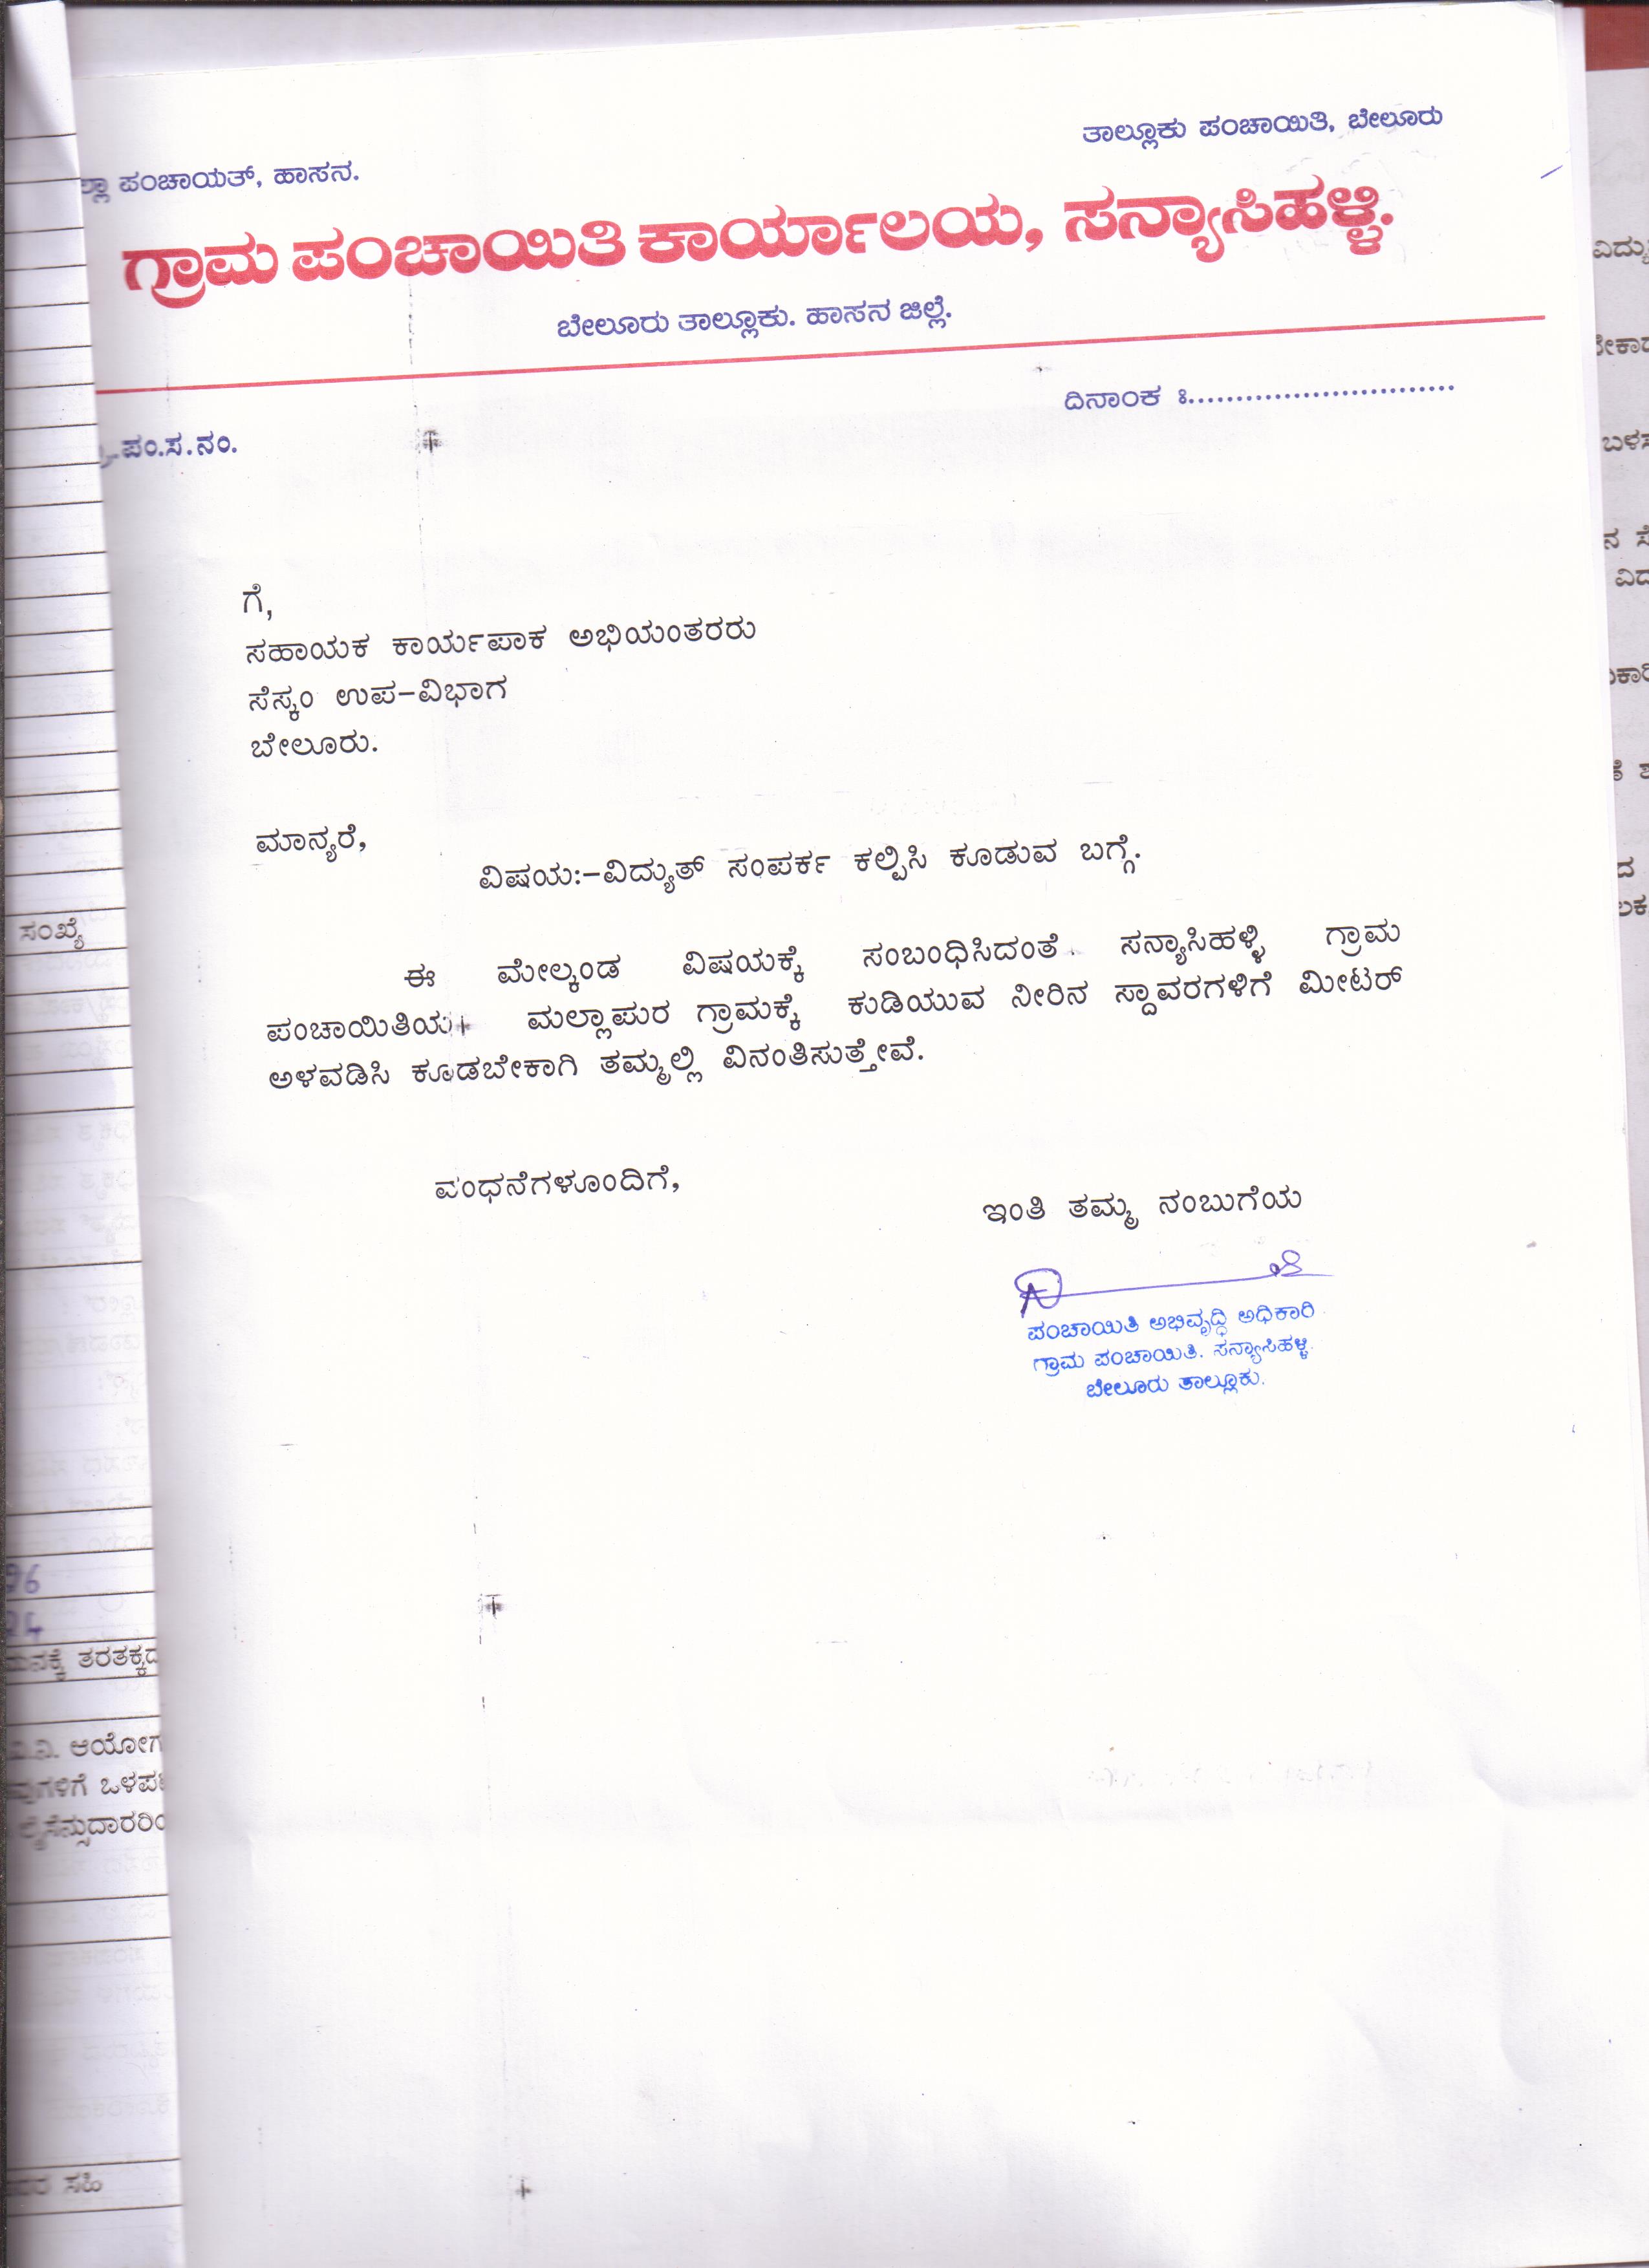 ಪಂಚಾಯತ್, ಹಾಸನ.
ತಾಲ್ಲೂಕು ಪಂಚಾಯಿತಿ, ಬೇಲೂರು
ಗ್ರಾಮ ಪಂಚಾಯಿತಿ ಕಾರ್ಯಾಲಯ, ಸನ್ಯಾಸಿಹಳ್ಳಿ.
ಬೇಲೂರು ತಾಲ್ಲೂಕು. ಹಾಸನ ಜಿಲ್ಲೆ.
ದಿನಾಂಕ :............................
ಪಂ.ಸ.ನಂ.
ಗೆ,
ಸಹಾಯಕ ಕಾರ್ಯಪಾಕ ಅಭಿಯಂತರರು
ಸೆಸ್ಕಂ ಉಪ-ವಿಭಾಗ
ಬೇಲೂರು.
ಮಾನ್ಯರೆ,
ವಿಷಯ:-ವಿದ್ಯುತ್ ಸಂಪರ್ಕ ಕಲ್ಪಿಸಿ ಕೂಡುವ ಬಗ್ಗೆ.
ಈ ಮೇಲ್ಕಂಡ ವಿಷಯಕ್ಕೆ ಸಂಬಂಧಿಸಿದಂತೆ ಸನ್ಯಾಸಿಹಳ್ಳಿ ಗ್ರಾಮ
ಪಂಚಾಯಿತಿಯ ಮಲ್ಲಾಪುರ ಗ್ರಾಮಕ್ಕೆ ಕುಡಿಯುವ ನೀರಿನ ಸ್ದಾವರಗಳಿಗೆ ಮೀಟರ್
ಅಳವಡಿಸಿ ಕೂಡಬೇಕಾಗಿ ತಮ್ಮಲ್ಲಿ ವಿನಂತಿಸುತ್ತೇವೆ.
ವಂಧನೆಗಳೂಂದಿಗೆ,
ಇಂತಿ ತಮ್ಮ ನಂಬುಗೆಯ
ಪಂಚಾಯಿತಿ ಅಭಿವೃದ್ಧಿ ಅಧಿಕಾರಿ
ಗ್ರಾಮ ಪಂಚಾಯಿತಿ. ಸನ್ಯಾಸಿಹಳ್ಳಿ.
ಬೇಲೂರು ತಾಲ್ಲೂಕು.
ಸಂಖ್ಯೆ
ಆಯೋಗ
ಸಹಿ